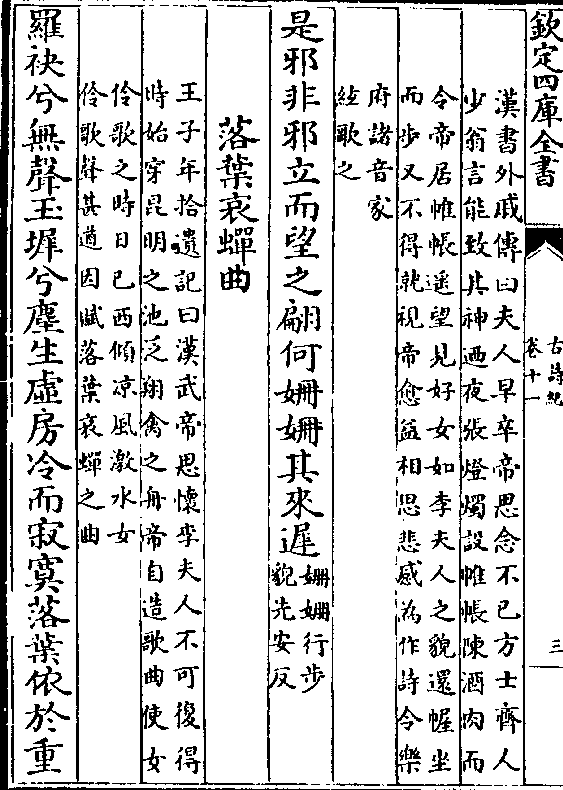 欽定四庫全書
古詩紀
卷十一
三
漢書外戚傳曰夫人早卒帝思念不已方士齊人
少翁言能致其神廼夜張燈燭設帷帳陳酒肉而
令帝居帷帳遥望見好女如李夫人之貌還幄坐
而步又不得就視帝愈益相思悲感為作詩令樂
府諸音家
絃歌之
是邪非邪立而望之翩何姍姍其來遲
姍姍行步
貌先安反
落葉哀蟬曲
王子年拾遺記曰漢武帝思懷李夫人不可復得
時始穿昆明之池泛翔禽之舟帝自造歌曲使女
伶歌之時日已西傾凉風激水女
伶歌聲甚遒因賦落葉哀蟬之曲
羅袂兮無聲玉墀兮塵生虛房冷而寂寞落葉依於重